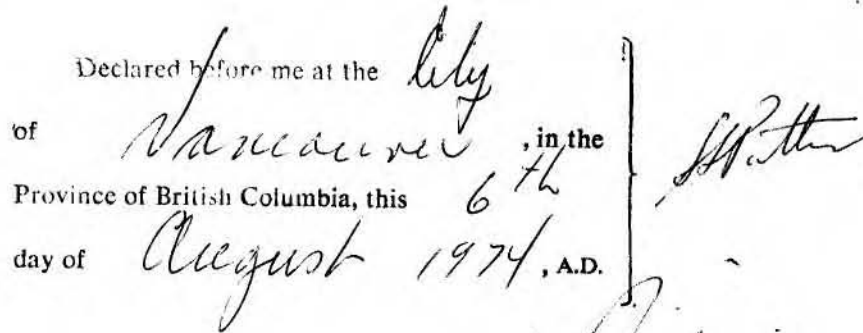 Declared before me at the City
of Vancouver, in the
Province of British Columbia, this 6th
day of August 1974, A.D.